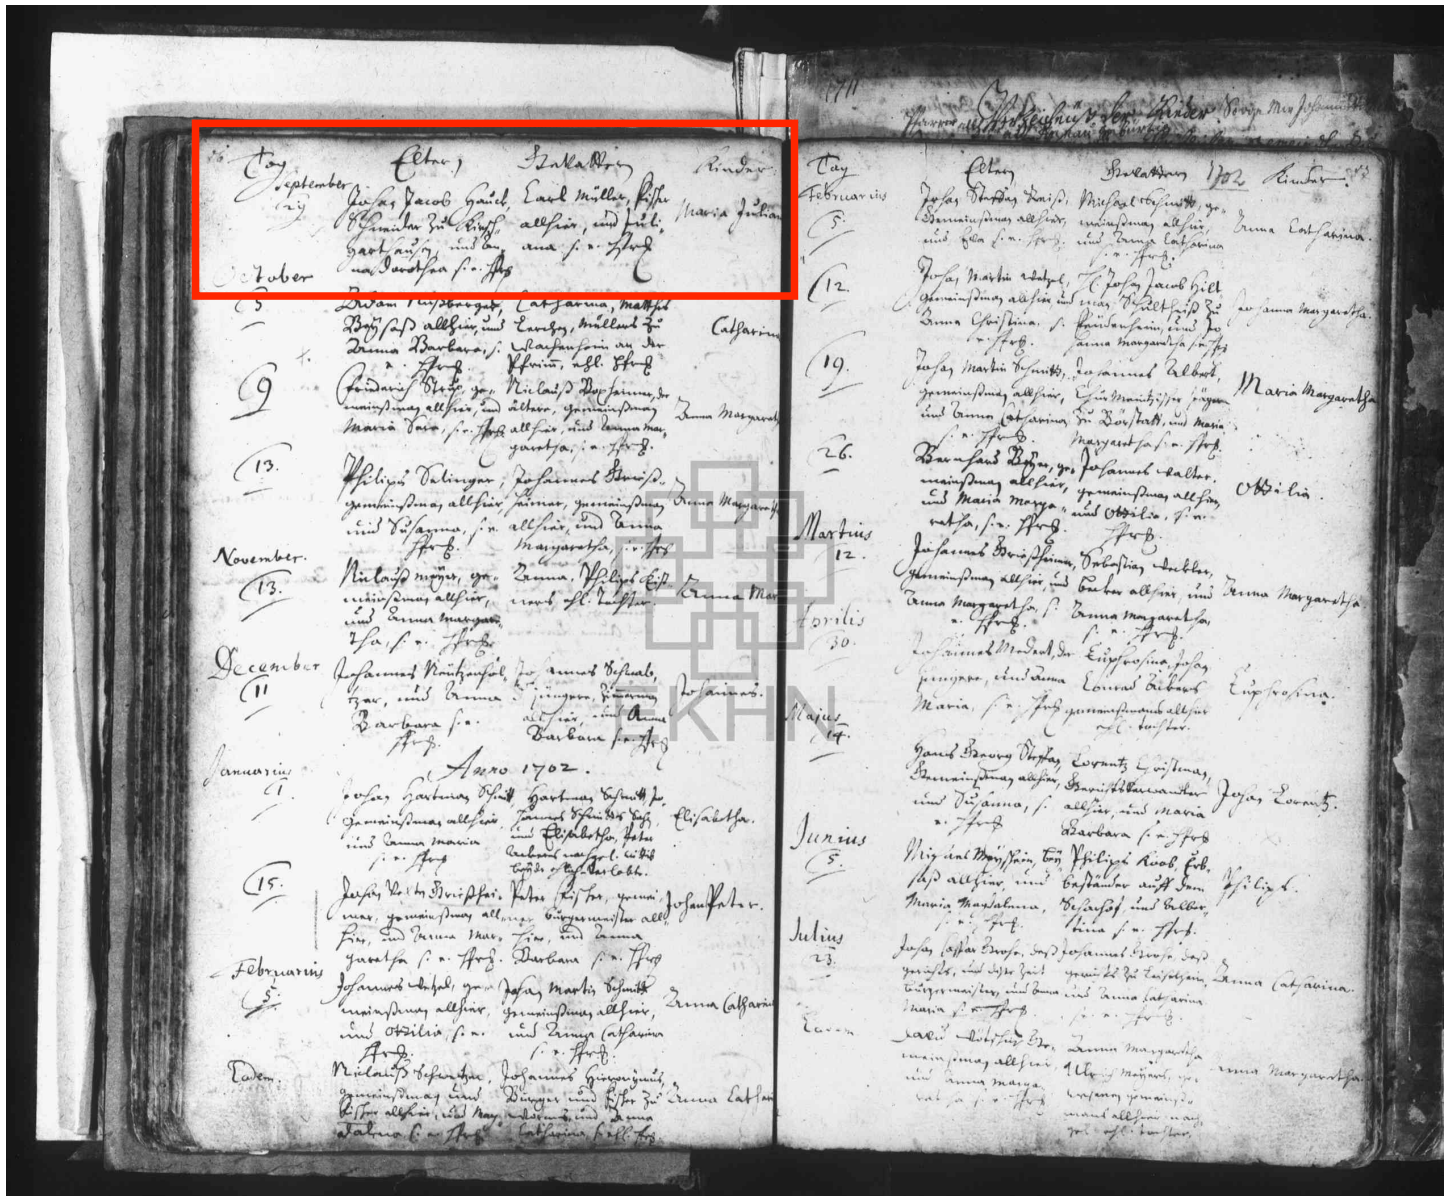 1711
Tag Elter Gevattern Kinder.
September
29
Johan Jacob Hauck,
Schneider zu Kirsch-
garthausen, und An-
na Dorothea s. e. Hfr.
Carl Müller, Fischer
allhier, und Juli-
ana s. e. Hfr.
Maria Julian
October
5
Adam
Beysaß allhier, und
Anna Barbara, s.
e. Hfr.
Catharina, Matthes
Lerchen, Müllers zu
Wachenheim an der
Pfrimm, ehl. Hfr.
Catharina
9
Friderich
gemeinßman allhier, und
Maria Sara, s. e. Hfr.
Niclauß Boxheimer, der
ältere, gemeinßman
allhier, und Anna Mar-
garetha, s. e. Hfr.
Anna Margareth
13.
Philips Salinger,
gemeinßman allhier
und Susanna, s. e.
Hfr.
Johannes
heimer, gemeinßman
allhier, und Anna
Margaretha, s. e. Hfr.
Anna Margareth
November.
13.
Niclauß Mäyer, ge-
meinßman allhier,
und Anna Margare-
tha, s. e. Hfr.
Anna, Philips
ners ehl. Tochter.
Anna Mar
December
11
Johannes
und Anna
Barbara s. e.
Hfr.
Johannes Schwab,
jüngere, Zimmerman
allhier, und Anna
Barbara s. e. Hfr.
Johannes.
Anno 1702.
Januarius
1.
Johan Hartman Schmitt,
gemeinßman allhier
und Anna Maria
s. e. Hfr.
Hartman Schmitt, Jo-
hannes Schmitts Sohn,
und Elisabetha, Peter
beyde Verlobte.
Elisabetha.
15.
Johan Veltin Grießhei-
mer, gemeinßman all-
hier, und Anna Mar-
garetha s. e. Hfr.
Peter Fischer, gemei-
ner burgermeister all-
hier, und Anna
Barbara s. e. Hfr.
Johan Peter.
Februarius
5.
Johannes Wetzel, ge-
meinßman allhier,
und Ottilia, s. e.
Hfr.
Johan Martin Schmitt
gemeinßman allhier,
und Anna Catharina
s. e. Hfr.
Anna Catharin
Eodem.
Niclauß Schweitzer,
gemeinßman und
Fischer allhier, und Mag-
dalena s. e. Hfr.
Johannes Hieronymus,
Burger und Fischer zu
Worms, und Anna
Catharina s. ehl. Hfr.
Anna Cathar
Tag Eltern Gevattern 1702 Kinder.
Februarius
5.
Johan Steffan
Gemeinßman allhier,
und Eva s. e. Hfr.
Michael Schmitt, ge-
meinßman allhier,
und Anna Catharina
s. e. Hfr.
Anna Catharina.
12.
Johan Martin Wetzel,
gemeinßman allhier und
Anna Christina, s.
e. Hfr.
Johan Jacob Hilt
man, Schultheiß zu
Freudenheim, und Jo-
hanna Margaretha s. e. Hfr.
Johanna Margaretha.
19.
Johan Martin Schmitt,
gemeinßman allhier,
und Anna Catharina
s. e. Hfr.
Johannes Albert,
Chur Mäintzischer Jäger
zu Bürstatt, und Maria
Margaretha s. e. Hfr.
Maria Margaretha
26.
Bernhard Beyer, ge-
meinßman allhier,
und Maria Marga-
retha, s. e. Hfr.
Johannes Walter,
gemeinßman allhier
und Ottilia, s. e.
Hfr.
Ottilia.
Martius
12.
Johannes Grießheimer,
gemeinßman allhier, und
Anna Margaretha, s.
e. Hfr.
Sebastian Weckler,
becker allhier, und
Anna Margaretha,
s. e. Hfr.
Anna Margaretha
Aprilis
30.
Johannes Medert, der
jüngere, und Anna
Maria, s. e. Hfr.
Euphrosina, Johan
Conrad Sibers
gemeinßmans allhier
ehl. tochter.
Euphrosina.
Majus
14.
Hans Georg Steffan,
Gemeinßman allhier,
und Susanna, s.
e. Hfr.
Lorentz Christman,
Gerichtsverwander
allhier, und Maria
Barbara s. e. Hfr.
Johan Lorentz.
Junius
5.
Michael
saß allhier, und
Maria Magdalena,
s. e. Hfr.
Philips Koob, Erb-
beständer auff dem
Scharhof, und Alber-
tina s. e. Hfr.
Philips.
Julius
23.
Johan Caspar Grohe, deß
gerichts, und dißer Zeit
burgermeister, und Anna
Maria s. e. Hfr.
Johannes Grohe, deß
gerichts zu
und Anna Catharina
s. e. Hfr.
Anna Catharina.
Eodem
meinßman allhier,
und Anna Marga-
retha s. e. Hfr.
Anna Margaretha
Ullrich Mäyers, ge-
wesenen gemeinß-
mans allhier
ehl. tochter.
Anna Margaretha.
EKHN